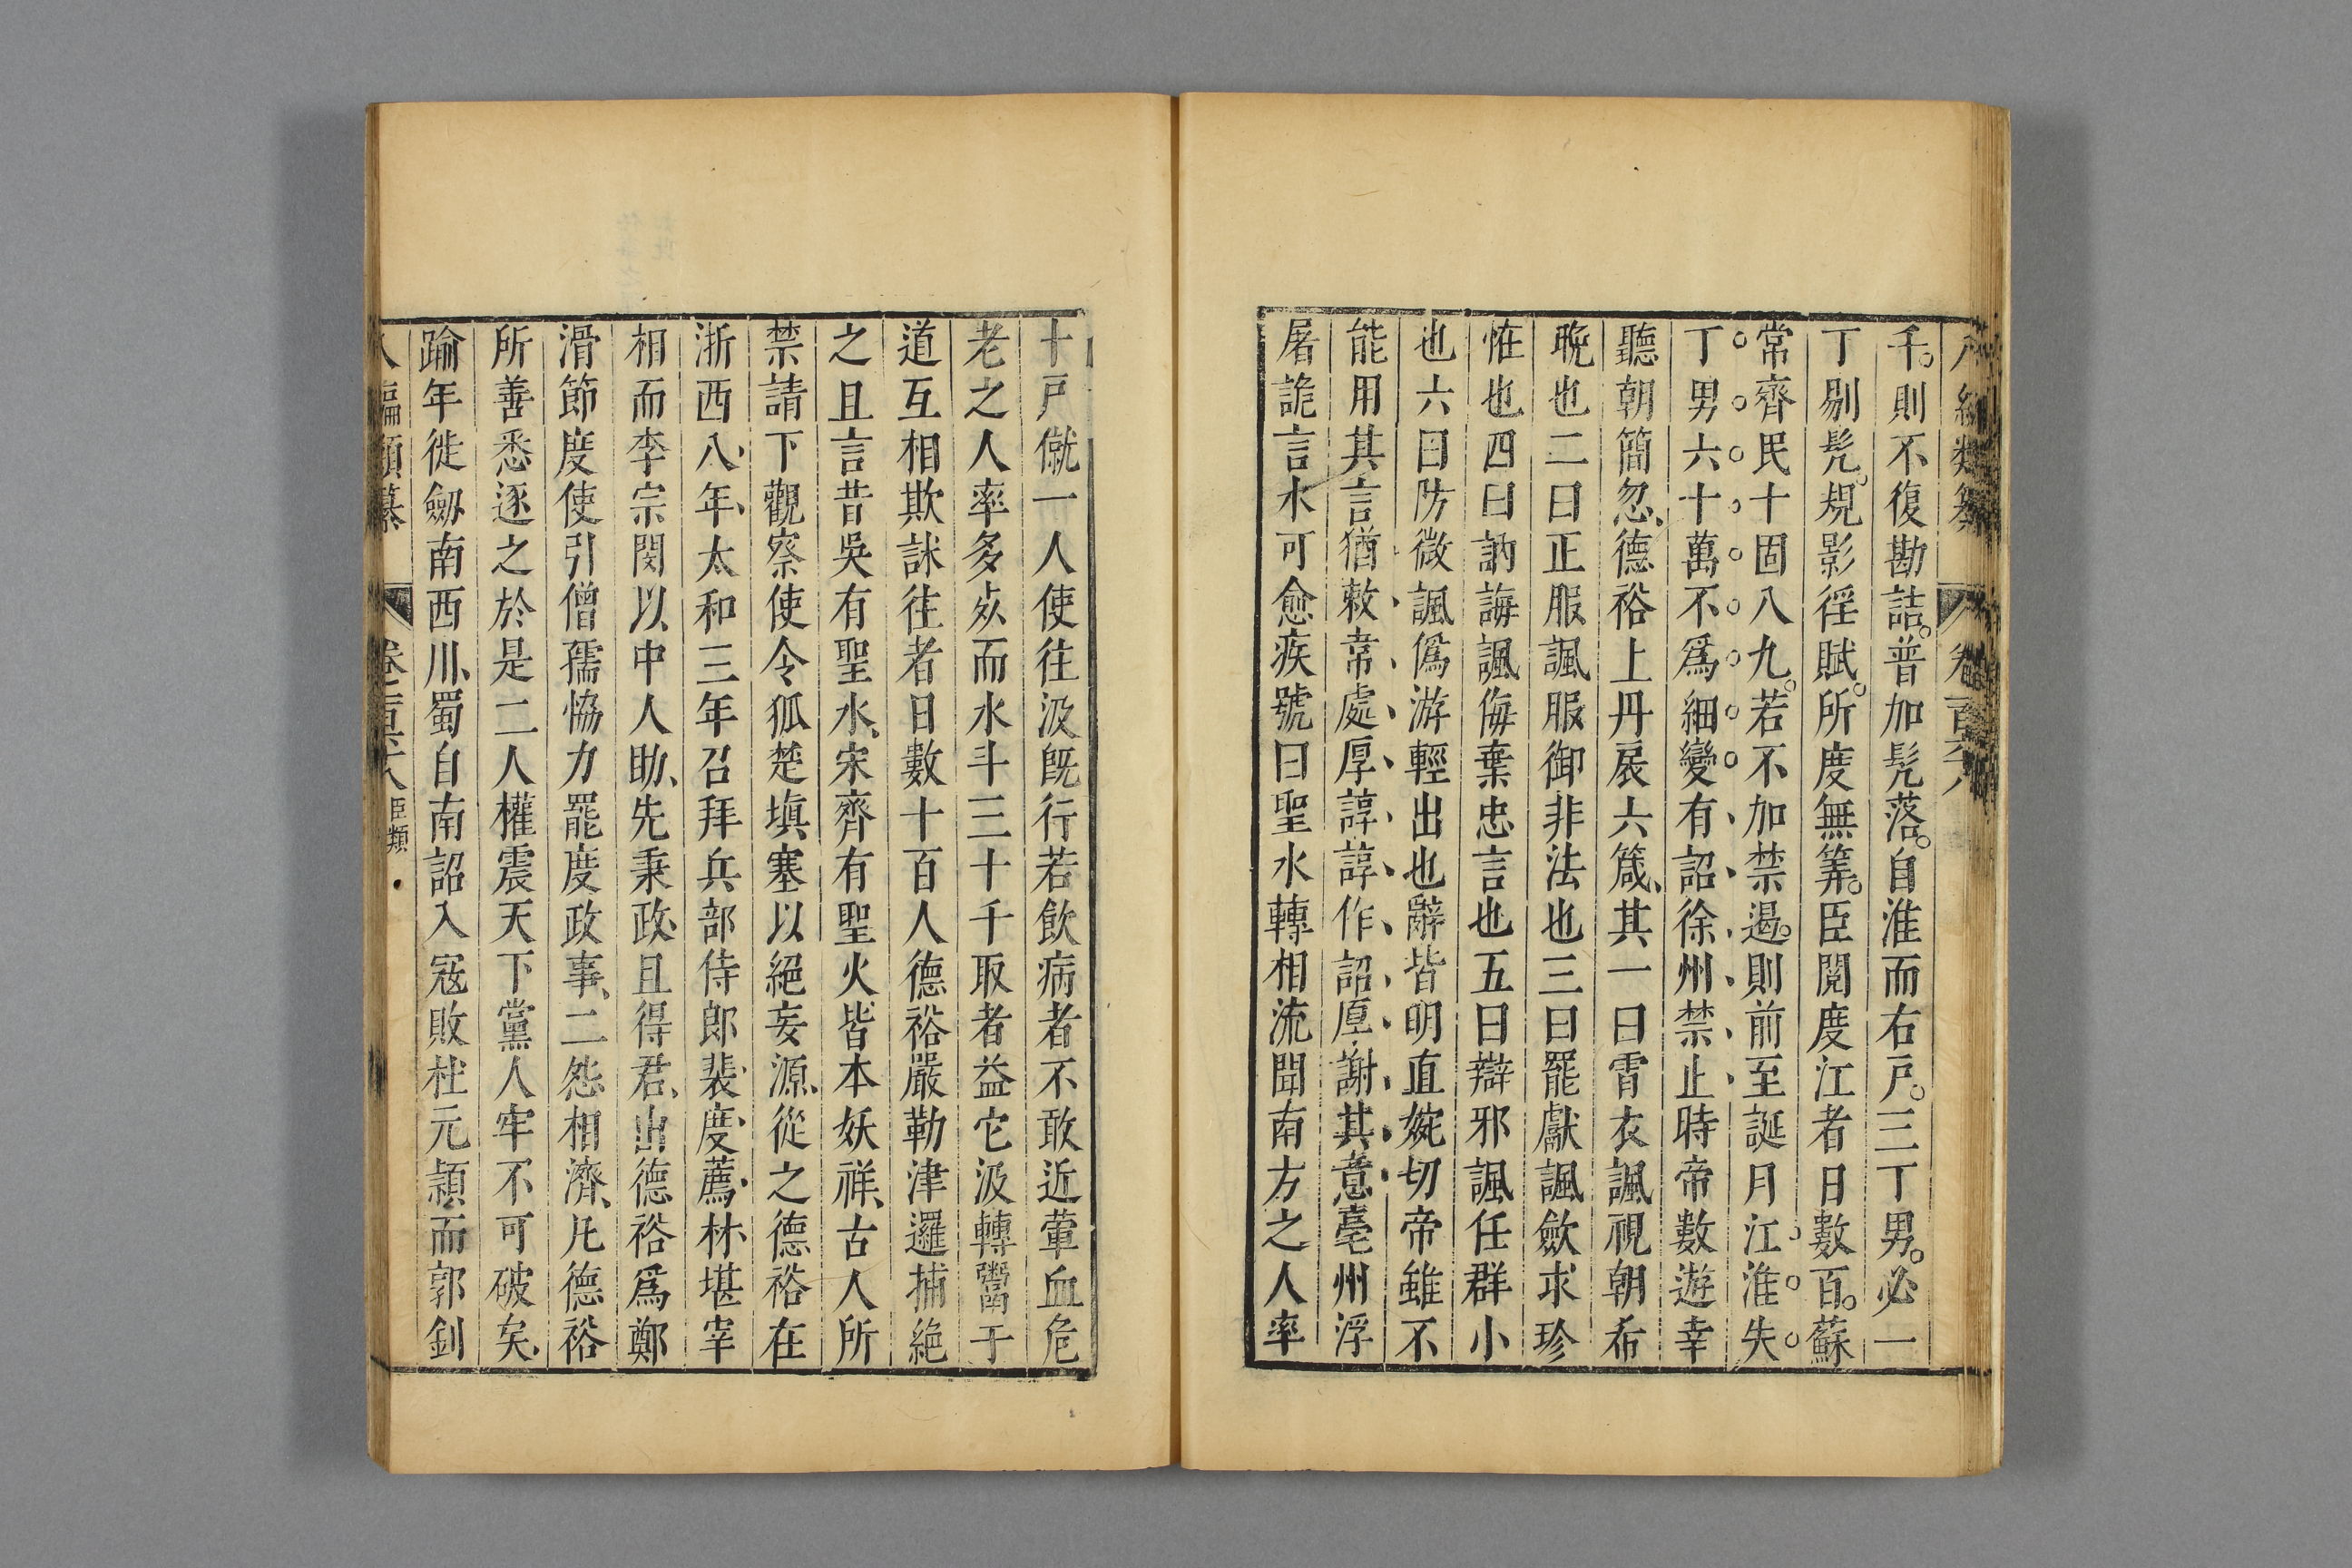 八編類纂 卷百六八
千則不復勘詰普加髠落自淮而右戸三丁男必一
丁剔髠規影徭賦所度無筭臣閱度江者日數百蘇
常齊民十固八九若不加禁遏則前至誕月江淮失
丁男六十萬不爲細變有詔徐州禁止時帝數遊幸
聽朝簡忽德裕上丹扆六箴其一曰霄衣諷視朝希
晚也二曰正服諷服御非法也三曰罷獻諷斂求珍
恠也四曰訥誨諷侮棄忠言也五曰辯邪諷任群小
也六曰防微諷僞游輕出也辭皆明直婉切帝雖不
能用其言猶敕韋處厚諄諄作詔厚謝其意亳州浮
屠詭言水可愈疾號曰聖水轉相流聞南方之人率
十戸僦一人使往汲旣行若飲病者不敢近葷血危
老之人率多死而水斗三十千取者益它汲轉鬻于
道互相欺訹往者日數十百人德裕嚴勒津邏捕絕
之且言昔吳有聖水宋齊有聖火皆本妖祥古人所
禁請下觀察使令狐楚塡塞以絕妄源從之德裕在
浙西八年太和三年召拜兵部侍郎裴度薦材堪宰
相而李宗閔以中人助先秉政且得君出德裕爲鄭
滑節度使引僧孺恊力罷度政事二怨相濟凡德裕
所善悉逐之於是二人權震天下黨人牢不可破矣
踰年徙劒南西川蜀自南詔入寇敗杜元頴而郭釗
編類纂 卷 臣類